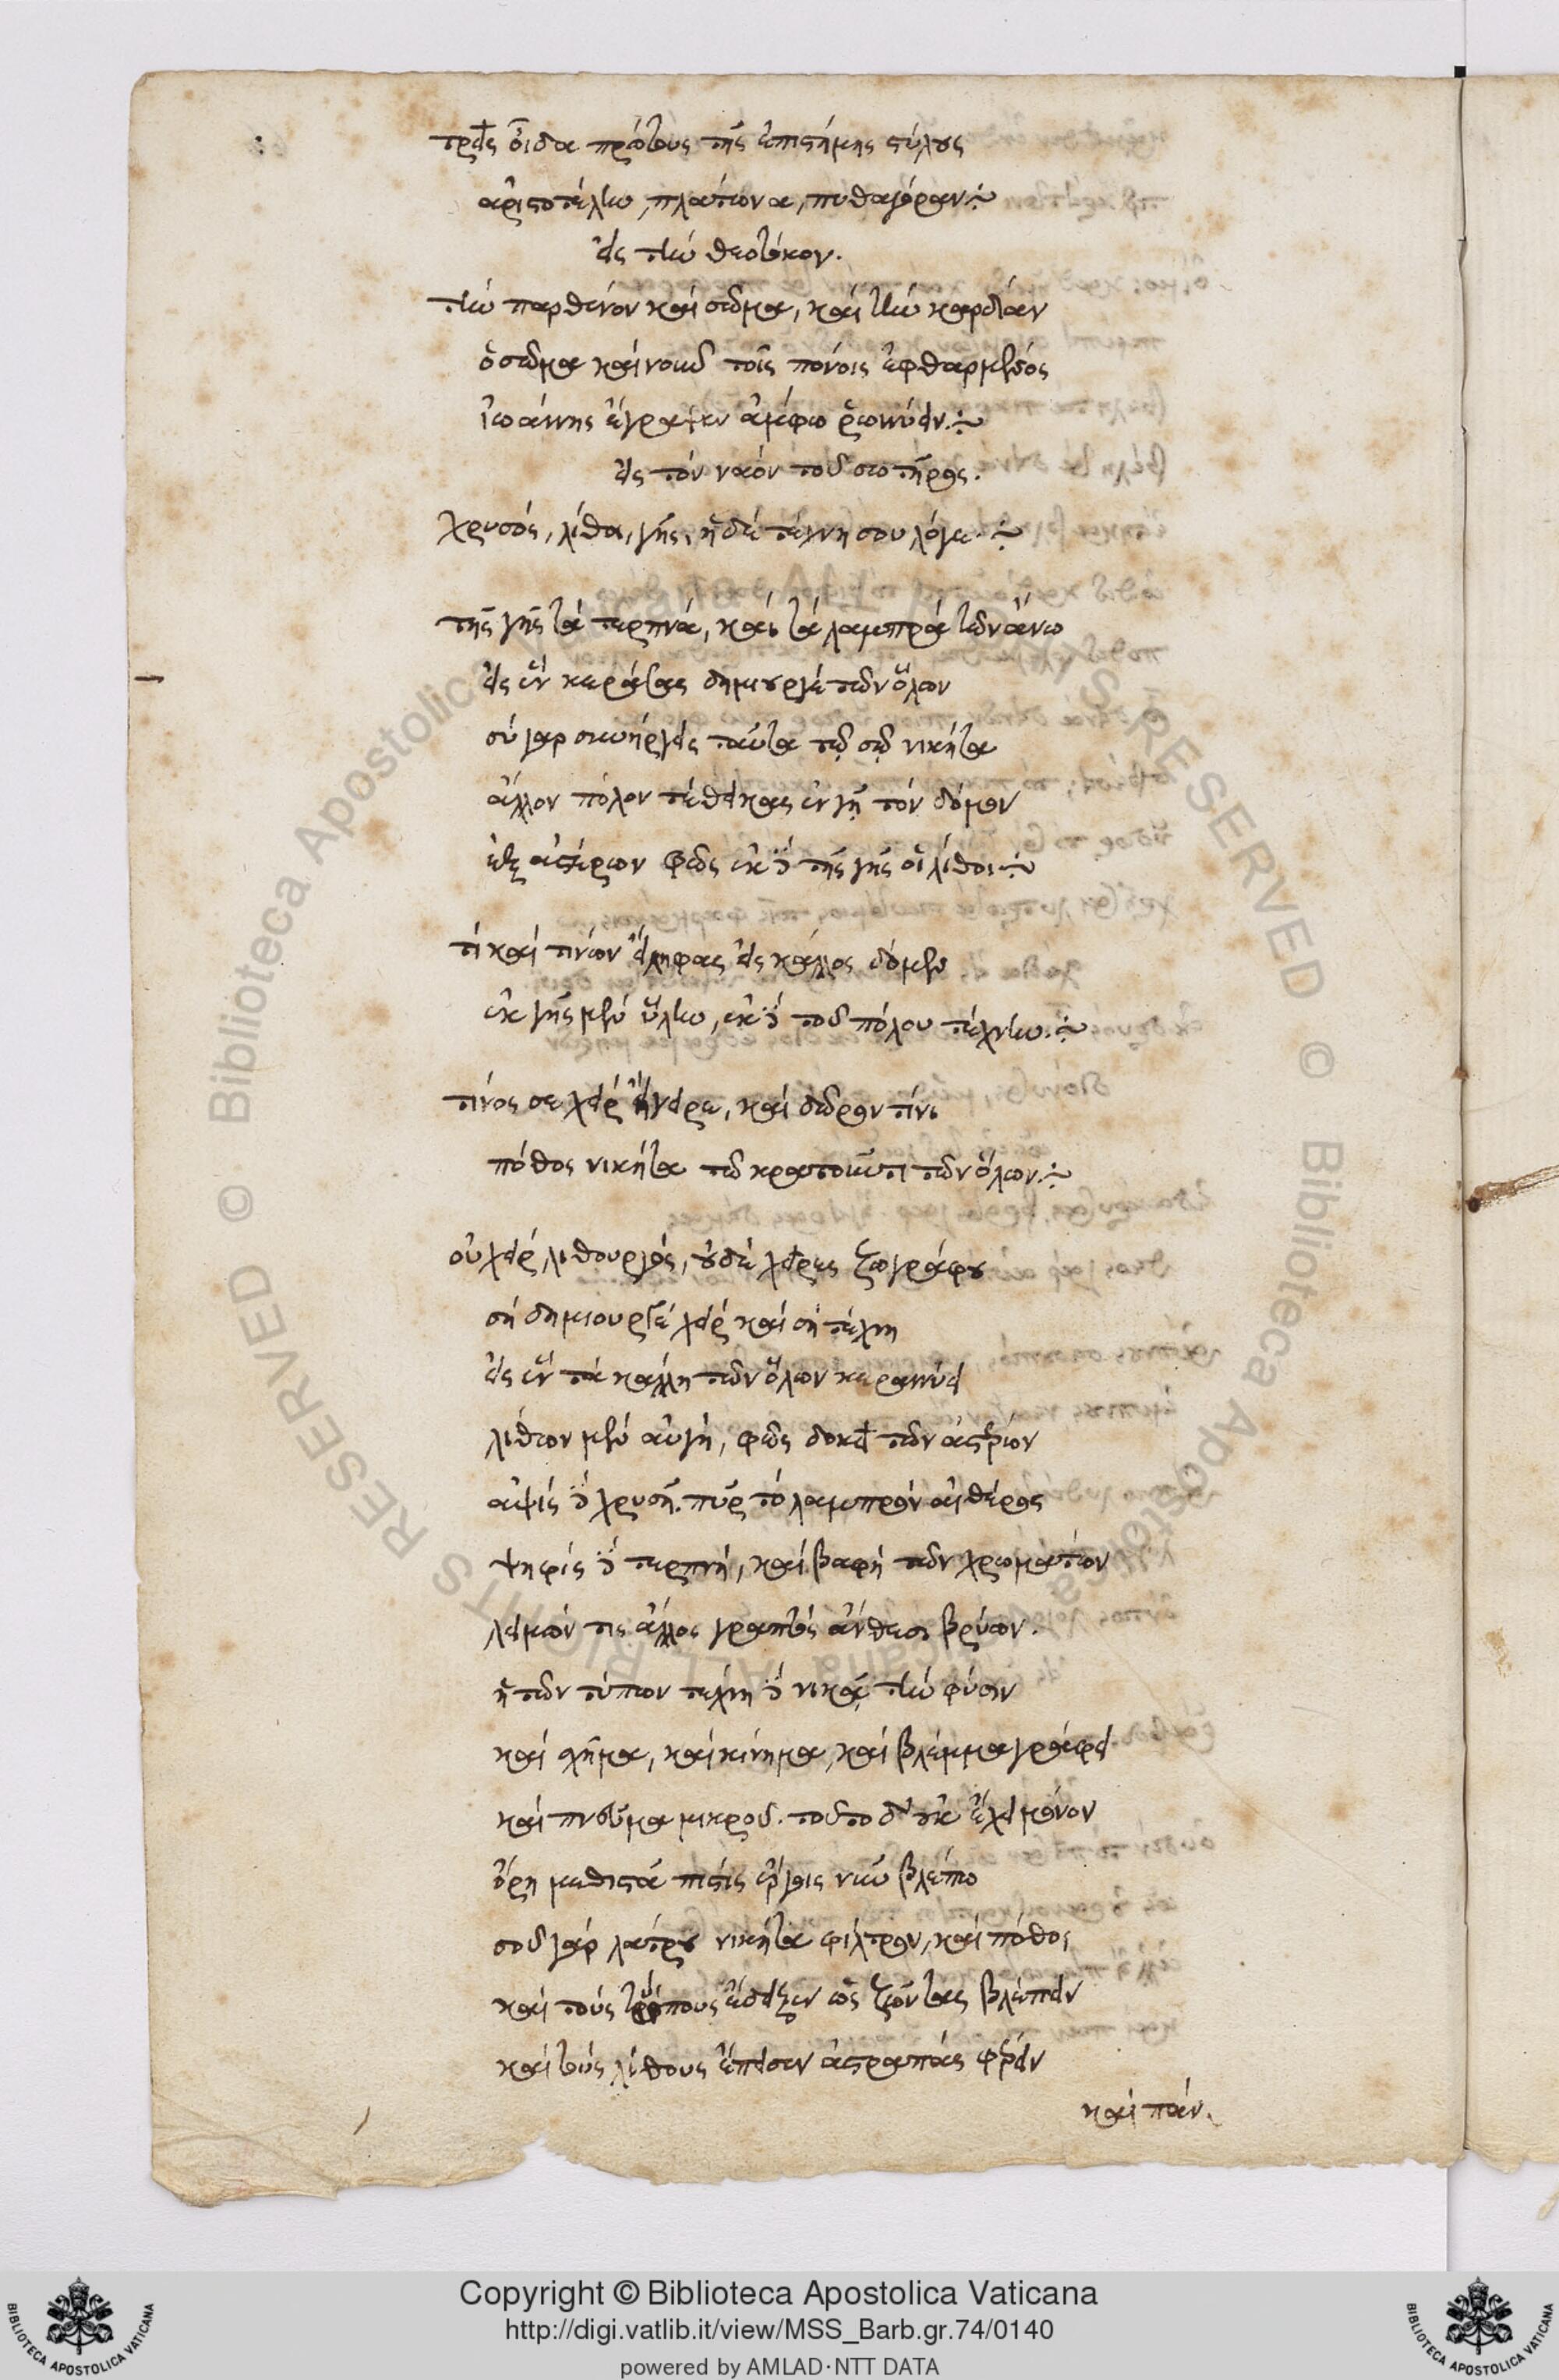 τρεῖς οἶδα πρώτους τῆς ἐπιστήμης στύλους
ἀριστοτέλην, πλάτωνα, πυθαγόραν
εἰς τὴν θεοτόκον.
τὴν παρθένον καὶ σῶμα, καὶ τὴν καρδίαν
ὁ σῶμα καὶ νοῦν τοῖς πόνοις ἐφθαρμένος
ἰωάννης ἔγραψεν ἄμφω ῥωννύειν.
εἰς τὸν ναὸν τοῦ σωτῆρος.
χρυσός, λίθοι, γῆς, ἡ δὲ τέχνη σου λόγε.
τῆς γῆς τὰ τερπνά, καὶ τὰ λαμπρὰ τῶν ἄνω
εἰς ἓν κεράσας δημιουργὲ τῶν ὅλων
σὺ γὰρ συνήργεις ταῦτα τῷ σῷ νικήτα
ἄλλον πόλον τέθεικας ἐν γῇ τὸν δόμον
ἐξ ἀστέρων φῶς ἐκ δὲ τῆς γῆς οἱ λίθοι
τί καὶ τίνων εἴληφας εἰς κάλλος δόμε
ἐκ γῆς μὲν ὕλην, ἐκ δὲ τοῦ πόλου τέχνην.
τίνος σε χεὶρ ἤγειρε, καὶ δῶρον τίνι
πόθος νικήτα τῷ κρατοῦντι τῶν ὅλων.
οὐ χεὶρ λιθουργός, οὐδὲ χεῖρες ζωγράφου
σὴ δημιουργὲ χεὶρ καὶ σὴ τέχνη
εἰς ἓν τὰ κάλλη τῶν ὅλων κεραννύει
λίθων μὲν αὐγή, φῶς δοκεῖ τῶν ἀστέρων
ἁψὶς δὲ χρυσῆ. πῦρ τὸ λαμπρὸν αἰθέρος
ψηφὶς δὲ τερπνή, καὶ βαφὴ τῶν χρωμάτων
λειμών τις ἄλλος γραπτὸς ἄνθεσι βρύων.
ἡ τῶν τύπων τέχνη δὲ νικᾷ τὴν φύσιν
καὶ σχῆμα, καὶ κίνημα, καὶ βλέμμα γράφει
καὶ πνεῦμα μικροῦ. τοῦτο δ' οὐκ εἶχε μόνον
ὄρη μεθιστᾷ πίστις ἔργοις νῦν βλέπω
σοῦ γὰρ λάτρου νικήτα φίλτρον, καὶ πόθος
καὶ τοὺς τύπους ἔδειξεν ὡς ζῶντας βλέπειν
καὶ τοὺς λίθους ἔπεισεν ἀστραπὰς φέρειν
καὶ πᾶν.
Copyright © Biblioteca Apostolica Vaticana
http://digi.vatlib.it/view/MSS_Barb.gr.74/0140
powered by AMLAD·NTT DATA